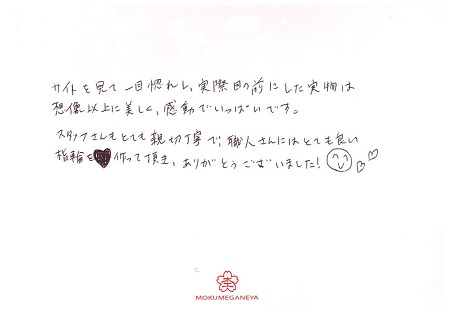 サイトを見て一目惚れし、実際目の前にした実物は
想像以上に美しく、感動でいっぱいです。
スタッフさんもとても親切丁寧で、職人さんにはとても良い
指輪を作って頂き、ありがとうございました!
MOKUMEGANEYA